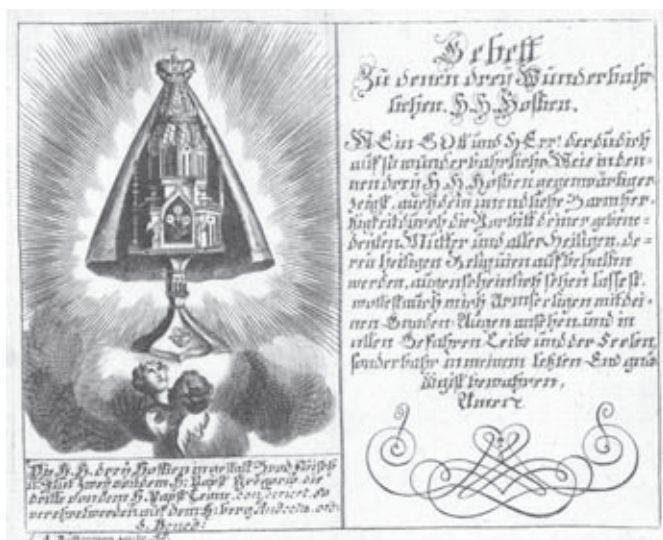 Gebett
Zu denen dreÿ Wunderbahr
lichen. H. H. Hostien.
MEin GOtt und HErr! der du dich
auf so wunderbahrliche Weis in de-
nen dreÿ H. H. Hostien gegenwärtiger
zeigst, auch dein unendliche Barmher-
zigkeit durch die Vorbitt deiner gebene-
deÿten Mutter und aller Heiligen, de-
ren heiligen Reliquien aufbehalten
werden, augenscheinlich sehen lassest,
wollest auch mich Armseligen mit dei-
nen Gnaden-Augen ansehen, und in
allen Gefahren Leibs und der Seelen,
sonderbahr in meinem letzten End gnä-
digist bewahren,
Amen
Die H. H. dreÿ Hostien in gestalt Brod, Fleisch
u. Blut, zweÿ von dem H: Papst Gregorio die
dritte von dem H. Papst Leone, so
verehret werden auf dem H: berg Andechs, ord:
S. Bened: